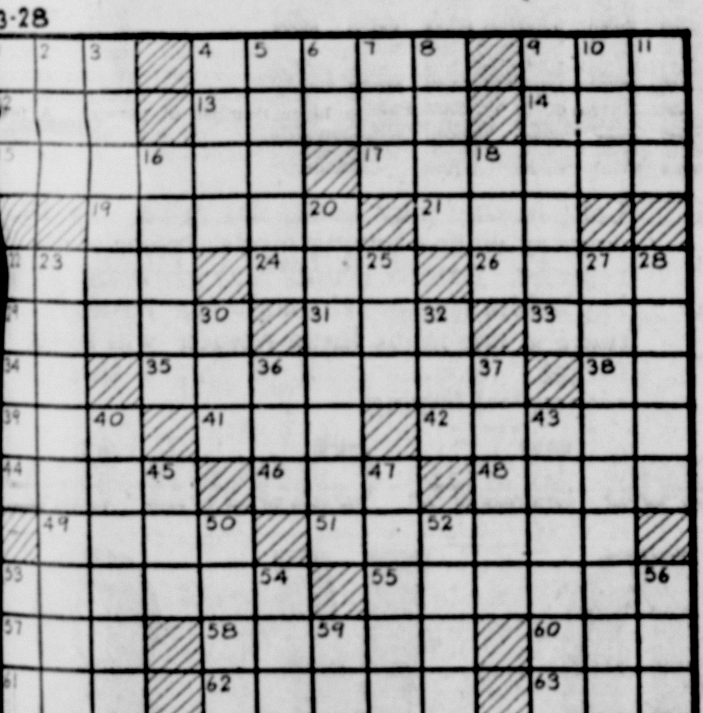 3-28
2 3 4 5 6 7 8 9 10 11
12 13 14
15 16 17 18
19 20 21
22 23 24 25 26 27 28
29 30 31 32 33
34 35 36 37 38
39 40 41 42 43
44 45 46 47 48
49 50 51 52
53 54 55 56
57 58 59 60
61 62 63